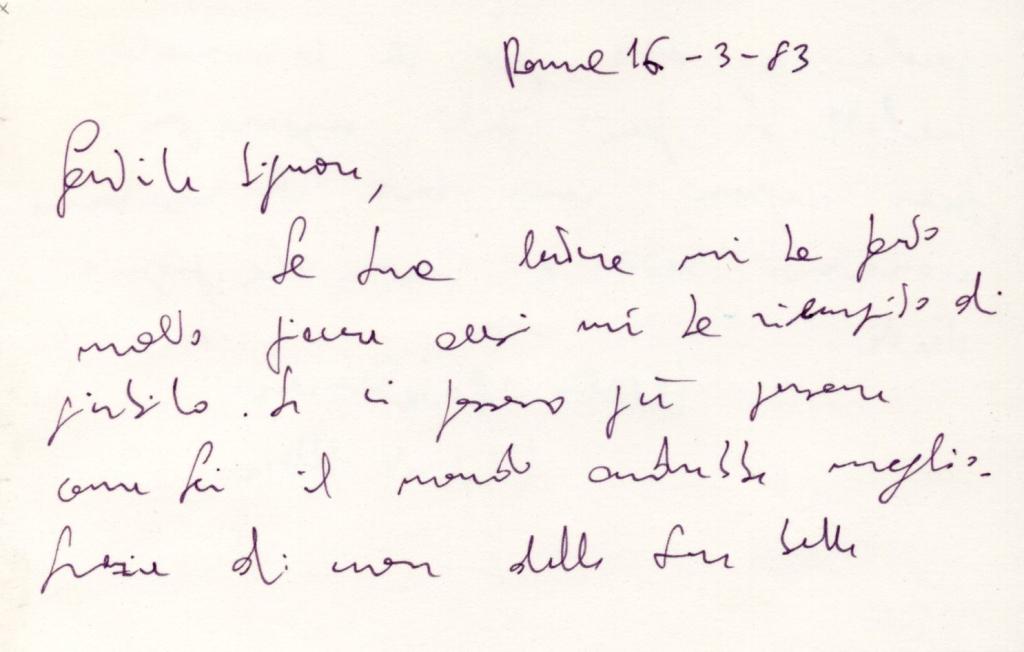 Roma 16-3-83
Gentile Signora,
La Sua lettera mi ha fatto
molto piacere anzi mi ha riempito di
giubilo. Se ci fossero più persone
come Lei il mondo andrebbe meglio.
Grazie di cuore delle Sue belle